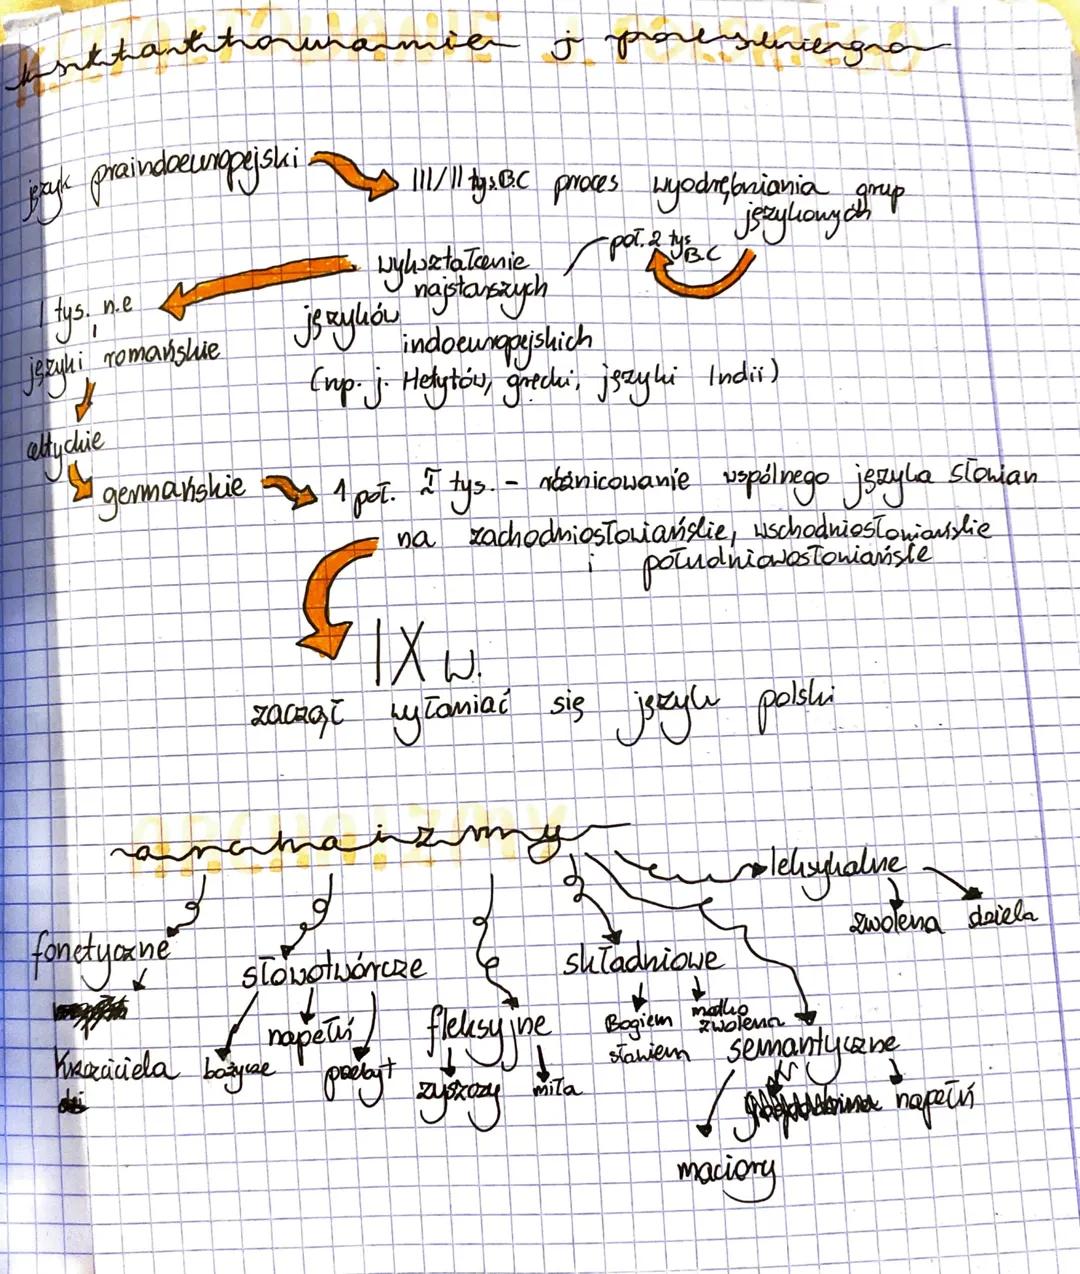 kształtowanie j polskiego
język praindoeuropejski
III/II tys. B.C proces wyodrębniania grup
językowych
poł. 2 tys
B.C
wykształcenie
najstarszych
języków
indoeuropejskich
(np. j. Hetytów, grecki, języki Indii)
1 tys. n.e
języki romańskie
celtyckie
germańskie
1 poł. I tys. - różnicowanie wspólnego języka słowian
na zachodniosłowiańskie, wschodniosłowiańskie
i południowosłowiańskie
IX w.
zaczął wyłamiać się język polski
archaizmy
leksykalne
zwolena dziela
fonetyczne
Krzciciela
słowotwórcze
bożycze
napełń
przebyt
fleksyjne
zyszczy
miła
składniowe
Bogiem
sławiem
matko
zwolena
semantyczne
napełń
maciory